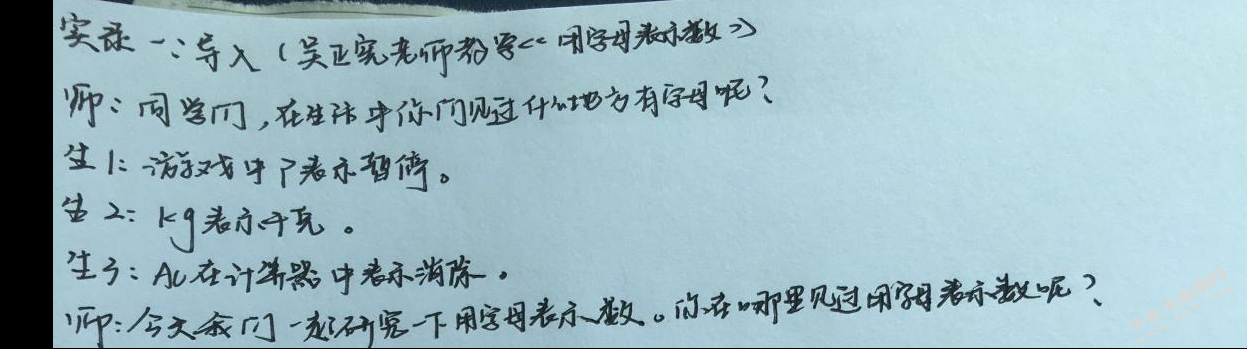 实录一：导入（吴正宪老师教学<<用字母表示数>>）
师：同学们，在生活中你们见过什么地方有字母呢？
生1：游戏中P表示暂停。
生2：kg表示千克。
生3：AC在计算器中表示消除。
师：今天我们一起研究一下用字母表示数。你在哪里见过用字母表示数呢？